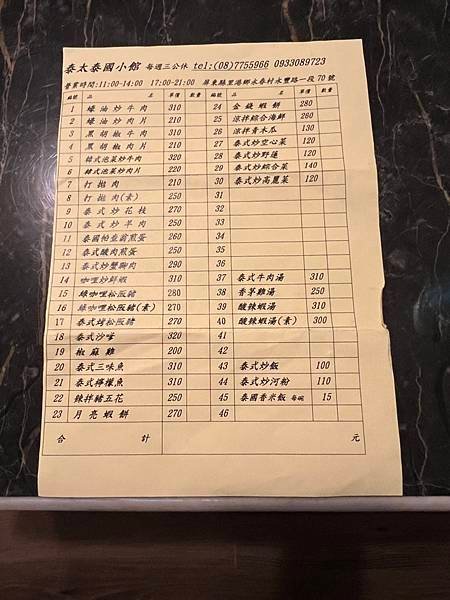 泰太泰國小館 每週三公休 tel:(08)7755966 0933089723
營業時間:11:00-14:00 17:00-21:00 屏東縣里港鄉永春村永豐路一段70號
編號 品 名 單價 數量 編號 品 名 單價 數量
1 蠔油炒牛肉 310 24 金錢蝦餅 280
2 蠔油炒肉片 210 25 涼拌綜合海鮮 260
3 黑胡椒牛肉 310 26 涼拌青木瓜 130
4 黑胡椒肉片 210 27 泰式炒空心菜 120
5 韓式泡菜炒牛肉 320 28 泰式炒野蓮 120
6 韓式泡菜炒肉片 220 29 泰式炒綜合菜 140
7 打拋肉 210 30 泰式炒高麗菜 120
8 打拋肉(素) 250 31
9 泰式炒花枝 270 32
10 泰式炒羊肉 250 33
11 泰國帕查前煎蛋 260 34
12 泰式酸肉煎蛋 250 35
13 泰式炒蟹腳肉 290 36
14 咖哩炒鮮蝦 310 37 泰式牛肉湯 310
15 綠咖哩松阪豬 280 38 香茅雞湯 250
16 綠咖哩松阪豬(素) 270 39 酸辣蝦湯 310
17 泰式烤松阪豬 270 40 酸辣蝦湯(素) 300
18 泰式沙嗲 320 41
19 椒麻雞 200 42
20 泰式三味魚 310 43 泰式炒飯 100
21 泰式檸檬魚 310 44 泰式炒河粉 110
22 辣拌豬五花 250 45 泰國香米飯 每碗 15
23 月亮蝦餅 270 46
合 計 元